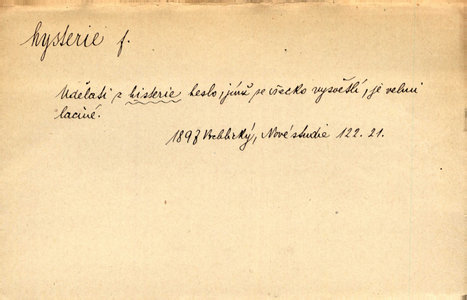 hysterie f.
Udělati z histerie heslo, jímž se všecko vysvětlí, je velmi
laciné.
1897 Vrchlický, Nové studie 122. 21.